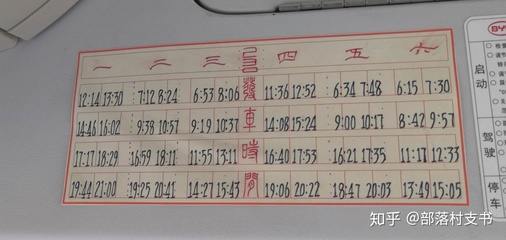 一 二 三 四 五 六
12:14 13:30 7:12 8:24 6:53 8:06 發 11:36 12:52 6:34 7:48 6:15 7:30
14:46 16:02 9:38 10:57 9:19 10:37 車 14:08 15:24 9:00 10:17 8:42 9:57
17:17 18:29 16:59 18:11 11:55 13:11 時 16:40 17:53 16:21 17:35 11:17 12:33
19:44 21:00 19:25 20:41 14:27 15:43 間 19:06 20:22 18:47 20:03 13:49 15:05
BY
启动
驾驶
停车
知乎 @部落村支书